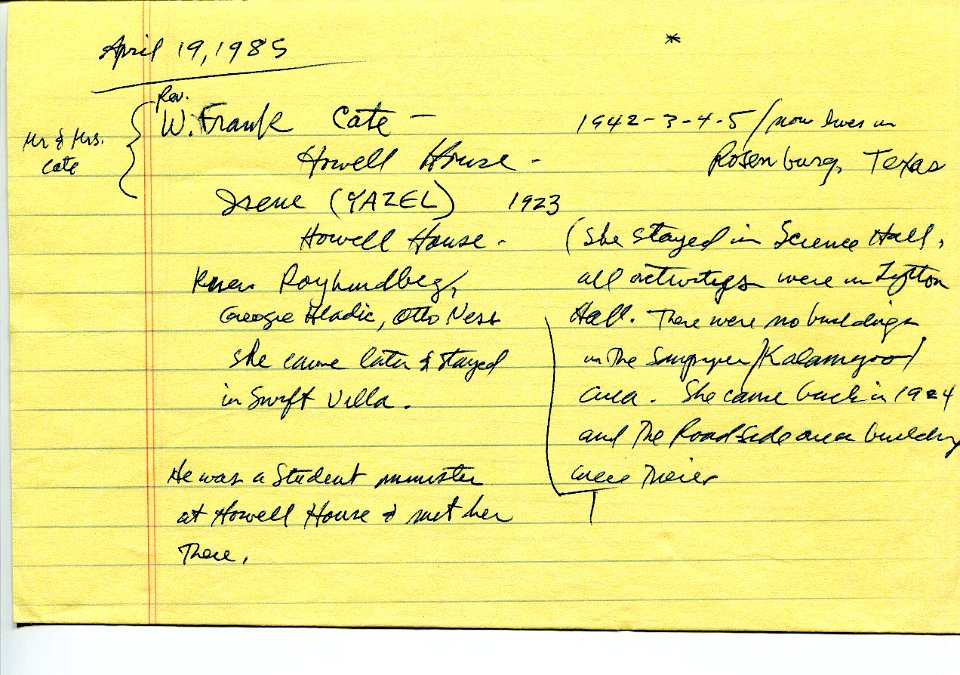 April 19, 1985
*
Mr & Mrs. Cate
Rev.
W. Frank Cate —
Howell House -
1942-3-4-5 / now lives in
Rosenburg, Texas
Irene (YAZEL) 1923
Howell House -
Roy Lundberg,
George Hladic, Otto Ness
she came later & stayed
in Swift Villa.
He was a Student minister
at Howell House & met her
There.
(She stayed in Science Hall,
all activities were in Lytton
Hall. There were no buildings
in The /Kalamazoo/
area. She came back in 1924
and The Roadside area building
were There